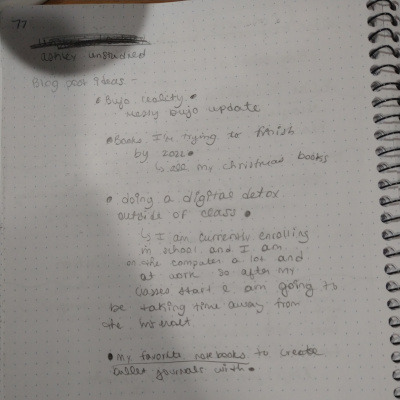 77
Blog post Ideas -
• Bujo reality •
Bujo update
• Books I'm trying to finish
by 2022 •
↳ all my christmas books
• doing a digital detox
outside of class •
↳ I am currently enrolling
in school and I am
on the computer a lot and
at work so after my
classes start I am going to
be taking time away from
the
• my favorite notebooks to create
journals with •